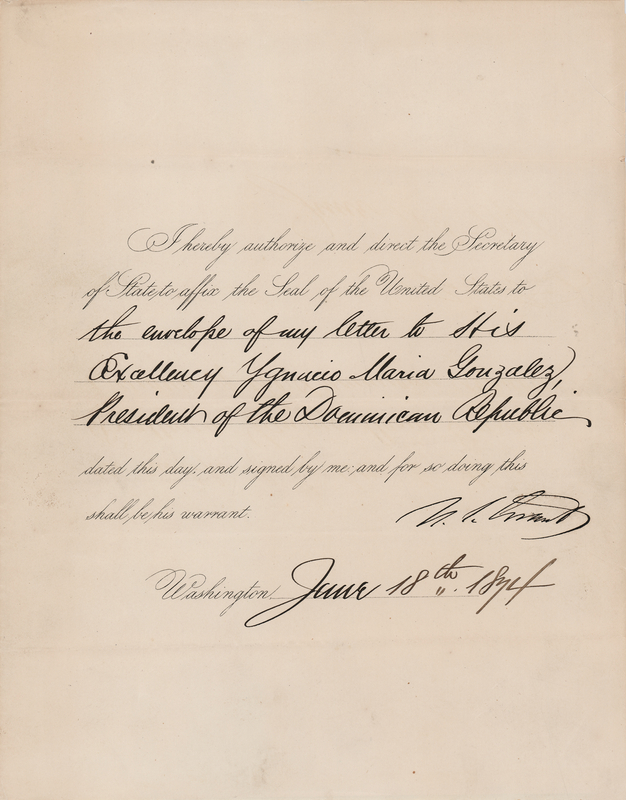 I hereby authorize and direct the Secretary
of State to affix the Seal of the United States to
the envelope of my letter to His
Excellency Ygnacio Maria Gonzalez,
President of the Dominican Republic
dated this day, and signed by me: and for so doing this
shall be his warrant.
U. S. Grant
Washington, June 18th. 1874